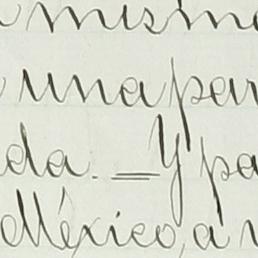 misma
una par
da. = Y pa
México, á